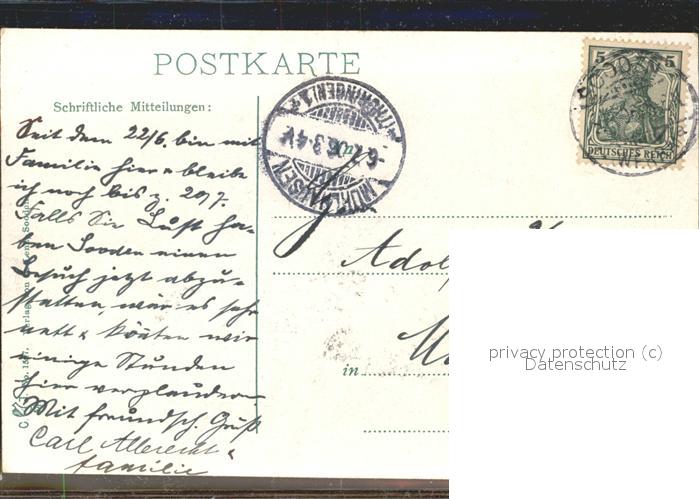 POSTKARTE
Schriftliche Mitteilungen:
5 5
DEUTSCHES REICH
MÜHLHAUSEN
(THÜRINGEN) 1
Seit dem 22/6. bin mit
Familie hier & bleibe
ich noch bis z. 20/7.
Falls Sie Lust ha-
ben Sooden einen
Besuch jetzt abzu-
statten, wär es sehr
nett & könten wir
einige Stunden
hier verplaudern
Mit freundsch. Gruß
Carl Albrecht &
familie
Adol
in
privacy protection (c)
Datenschutz